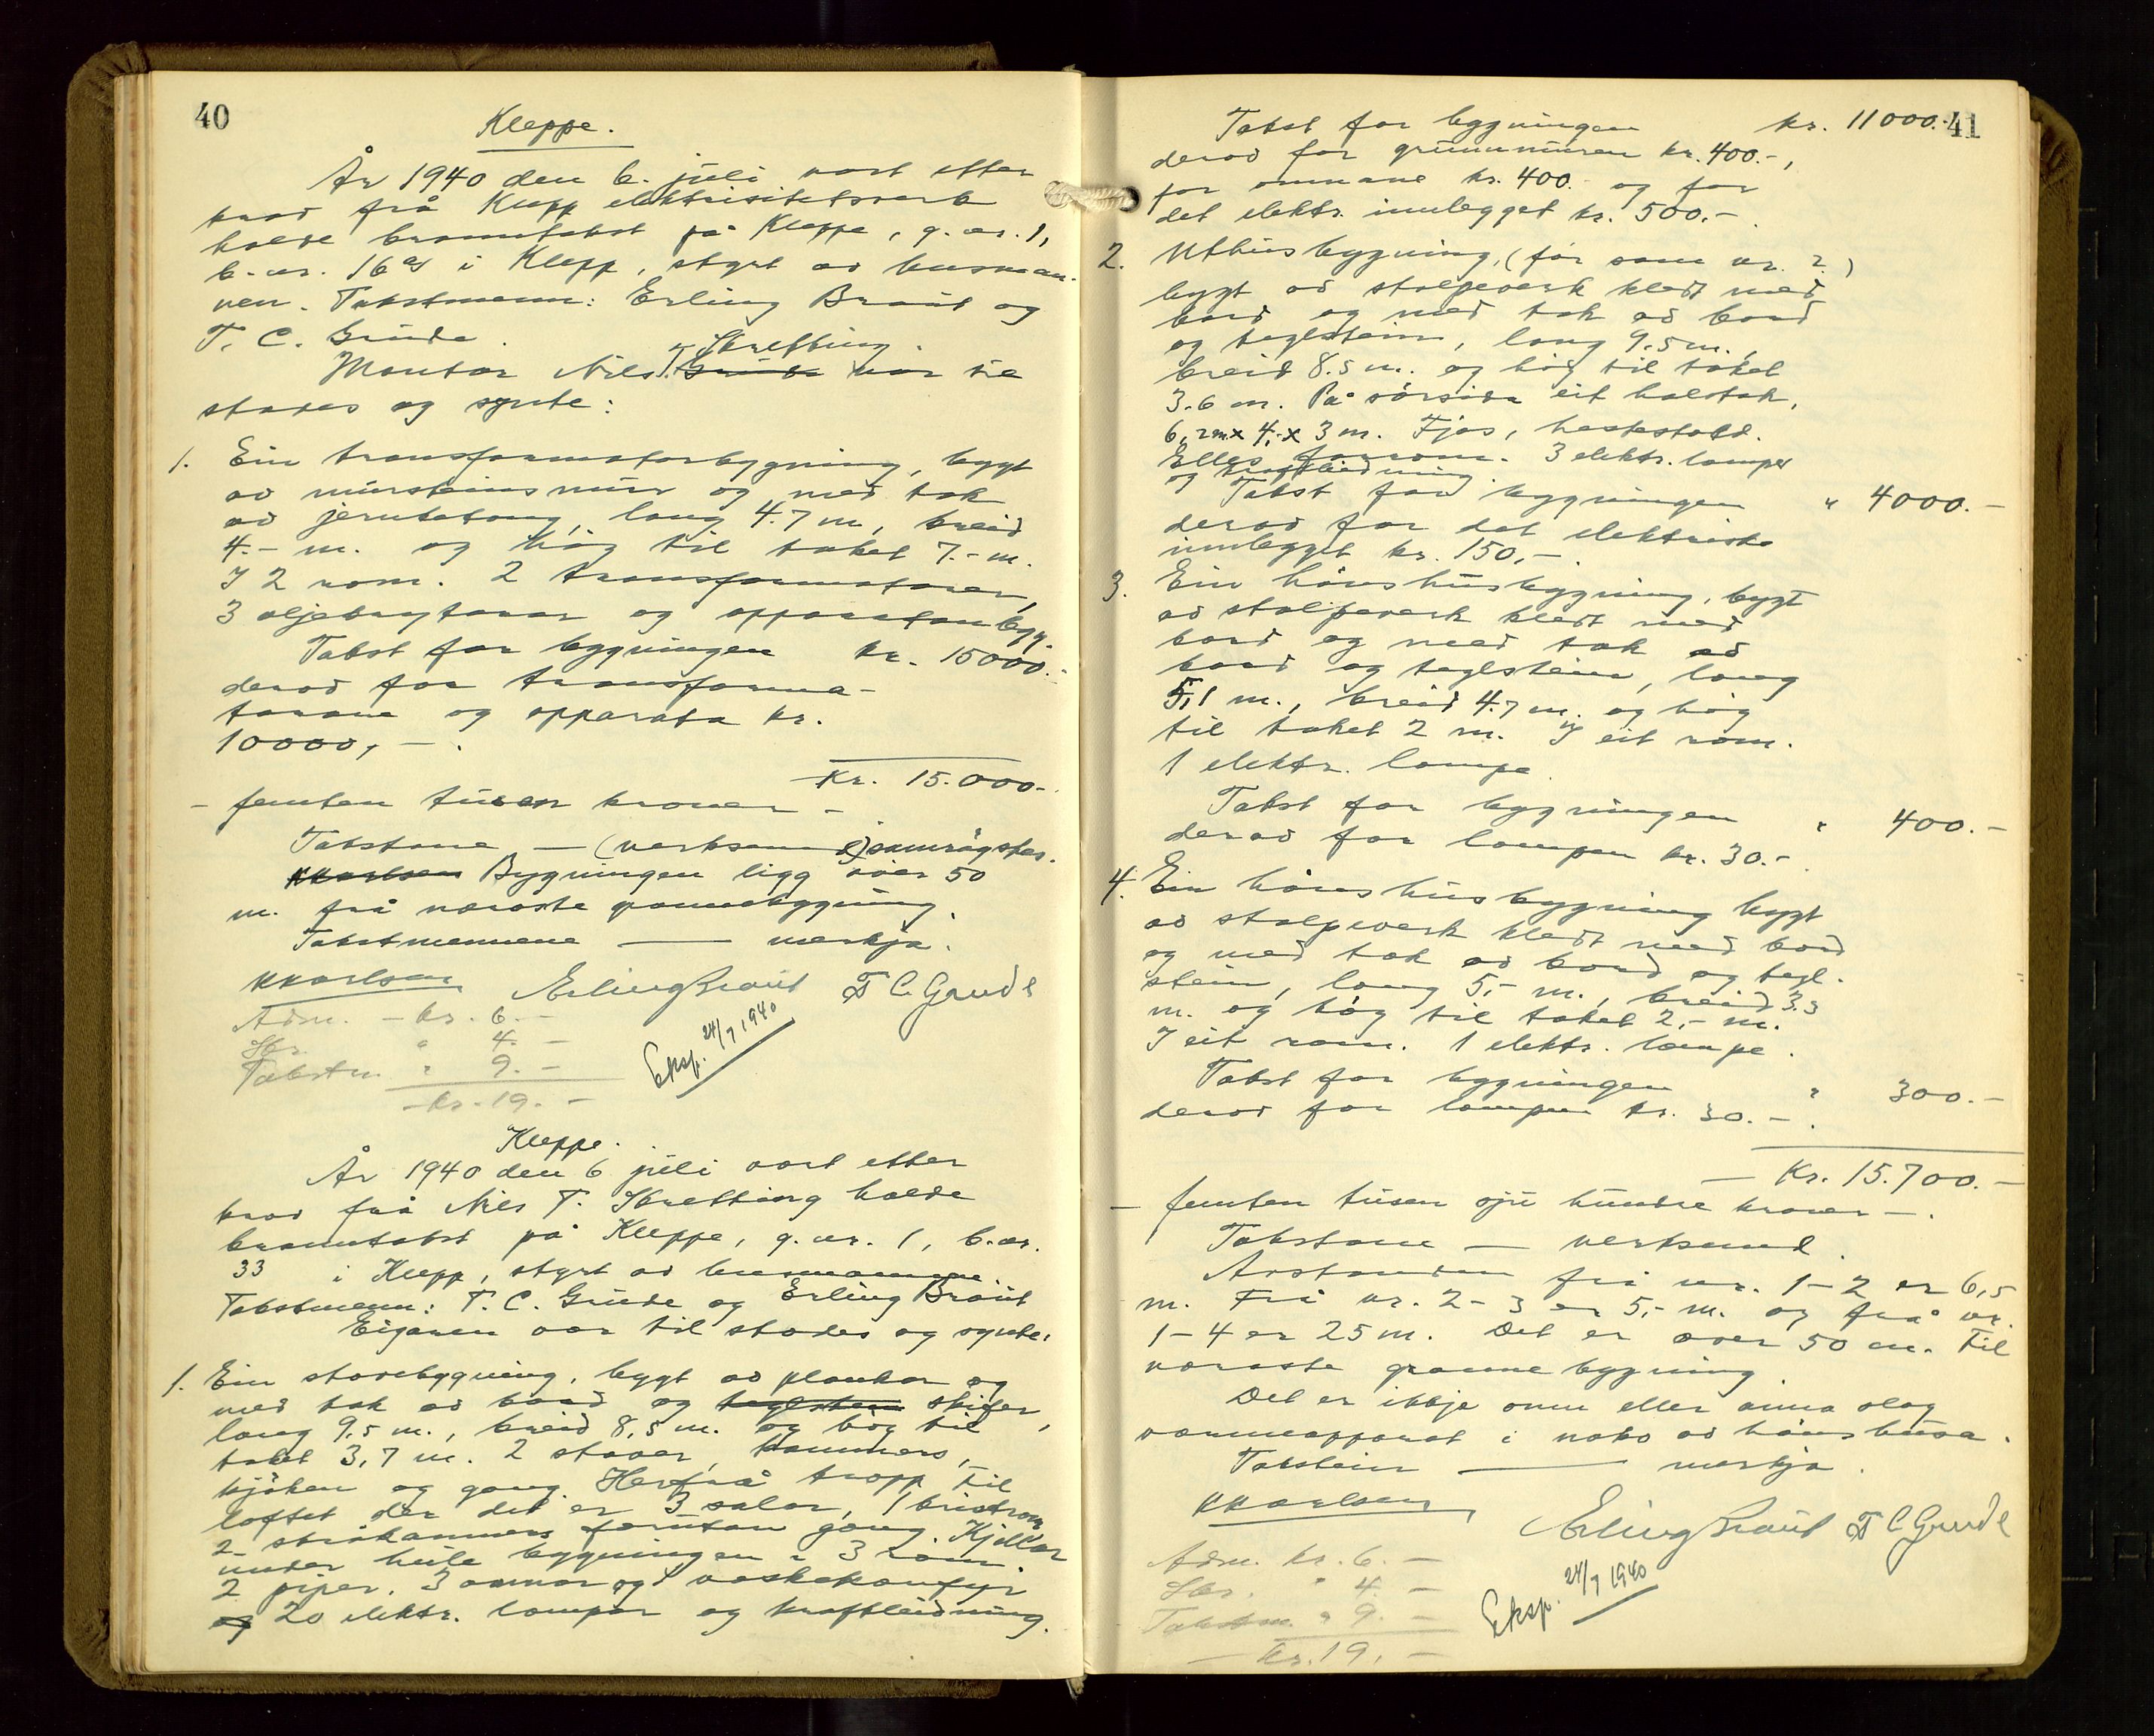 40
Kleppe.
År 1940 den 6. juli vart etter
krav frå Klepp elektrisitetsverk
halde branntakst på Kleppe, g.nr. 1,
b.nr. 16 i Klepp, styrt av lensman-
nen. Takstmenn: Erling Braut og
T. C. Grude.
Montør Nils T. Skretting var til
stades og synte:
1. Ein transformatorbygning, bygt
av mursteinsmur og med tak
av jernbetong, lang 4.7 m, breid
4.- m. og høg til taket 7.- m.
I 2 rom. 2 transformatorer,
3 oljebrytarar og apparatanlegg.
Takst for bygningen kr. 15000.-
derav for transforma-
torane og apparata kr.
10000,-.
Kr. 15.000.-
- femten tusen kroner -
Takstane — (verksemd) samrøystes.
KKarlsen Bygningen ligg over 50
m. frå næraste grannebygning.
Takstmennene — merkja.
KKarlsen Erling Braut T C Grude
Adm. - kr. 6.-
Skr. " 4.-
Takstm. " 9.-
kr. 19.-
Eksp. 24/7 1940
Kleppe.
År 1940 den 6 juli vart etter
krav frå Nils T. Skretting halde
branntakst på Kleppe, g.nr. 1, b.nr.
33 i Klepp, styrt av lensmannen.
Takstmenn: T. C. Grude og Erling Braut
Eigaren var til stades og synte:
1. Ein stovebygning, bygt av plankar og
med tak av bord og teglstein skifer,
lang 9.5 m., breid 8,5 m. og høg til
taket 3,7 m. 2 stover, kammers,
kjøken og gang. Herfrå tropp til
loftet der det er 3 salar, 1 kvistrom
2 skråkammers forutan gang. Kjellar
under heile bygningen i 3 rom.
2 piper. 3 omnar og vaskekomfyr
og 20 elektr. lampor og kraftleidning.
41
Takst for bygningen kr. 11000.-
derav for grunnmuren kr. 400.-,
for omnane kr. 400.- og for
det elektr. innlegget kr. 500.-.
2. Uthusbygning, (før som nr. 2)
bygt av stolpeverk kledt med
bord og med tak av bord
og teglstein, lang 9.5 m.,
breid 8.5 m. og høg til taket
3.6 m. På sørsida eit halvtak,
6,2m x 4,- x 3 m. Fjøs, hestestall.
Elles forrom. 3 elektr. lampor
og kraftleidning.
Takst for bygningen " 4000.-
derav for det elektriske
innlegget kr. 150,-.
3. Ein hønshusbygning, bygt
av stolpeverk kledt med
bord og med tak av
bord og teglstein, lang
5,1 m., breid 4.7 m. og høg
til taket 2 m. I eit rom.
1 elektr. lampe.
Takst for bygningen " 400.-
derav for lampen kr. 30.-.
4. Ein hønshusbygning bygt
av stolpeverk kledt med bord
og med tak av bord og tegl-
stein, lang 5,- m., breid 3.3
m. og høg til taket 2,- m.
I eit rom. 1 elektr. lampe.
Takst for bygningen " 300.-
derav for lampen kr. 30.-.
Kr. 15.700.-
- femten tusen sju hundre kroner -.
Takstane — verksemd.
Avstanden frå nr. 1-2 er 6,5
m. Frå nr. 2-3 er 5,- m. og frå nr.
1-4 er 25 m. Det er over 50 m. til
næraste grannebygning.
Det er ikkje omn eller anna slag
varmeapparat i noko av hønshusa.
Taksteinn — merkja.
KKarlsen
Erling Braut T C Grude
Adm. kr. 6.-
Skr. " 4.-
Takstm. " 9.-
kr. 19.-
Eksp. 24/7 1940